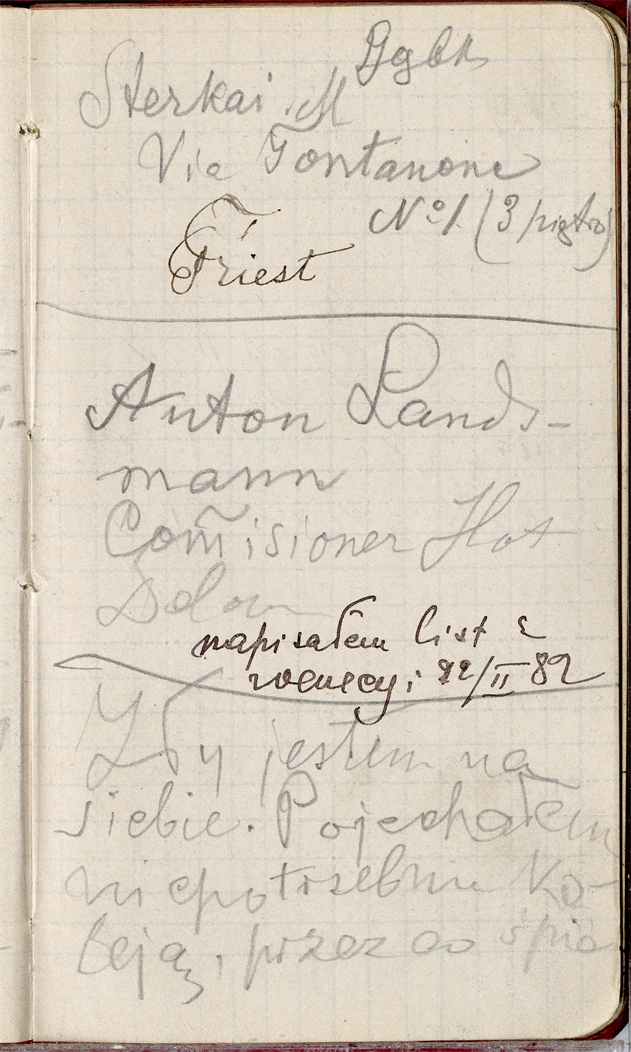 Sterkai M
Via Fontanone
No 1. (3 piętro)
Triest
Anton Lands-
mann
Com̄isioner Hot
Delorm
napisałem list z
wenecyi 22/II 82
Zły jestem na
siebie. Pojechałem
niepotrzebnie ko-
leją, przez co śpię